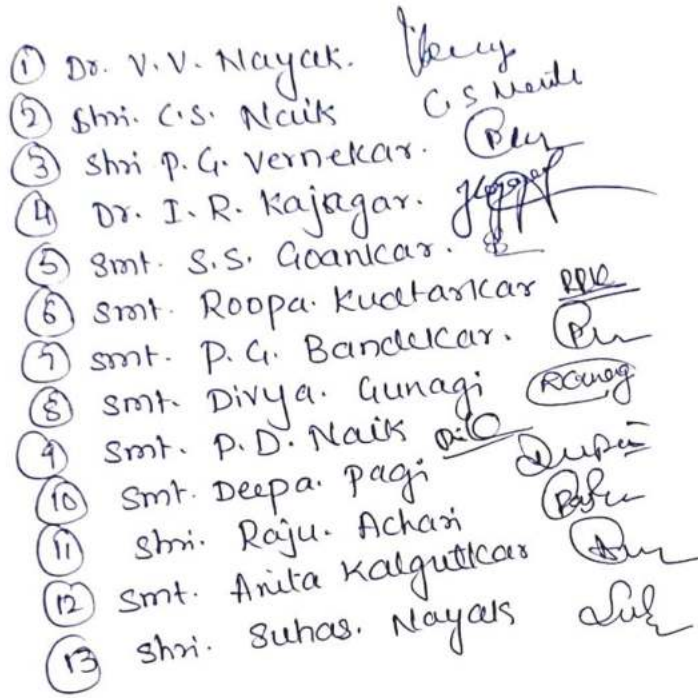 1 Dr. V.V. Nayak.
2 Shri. C.S. Naik C S Naik
3 Shri P.G. Vernekar.
4 Dr. I.R. Kajagar.
5 Smt. S.S. Goankar.
6 Smt. Roopa. Kudtarkar RRK
7 Smt. P.G. Bandekar.
8 Smt. Divya. Gunagi
9 Smt. P.D. Naik
10 Smt. Deepa. Pagi
11 Shri. Raju. Achari
12 Smt. Anita Kalgutkar
13 Shri. Suhas. Nayak